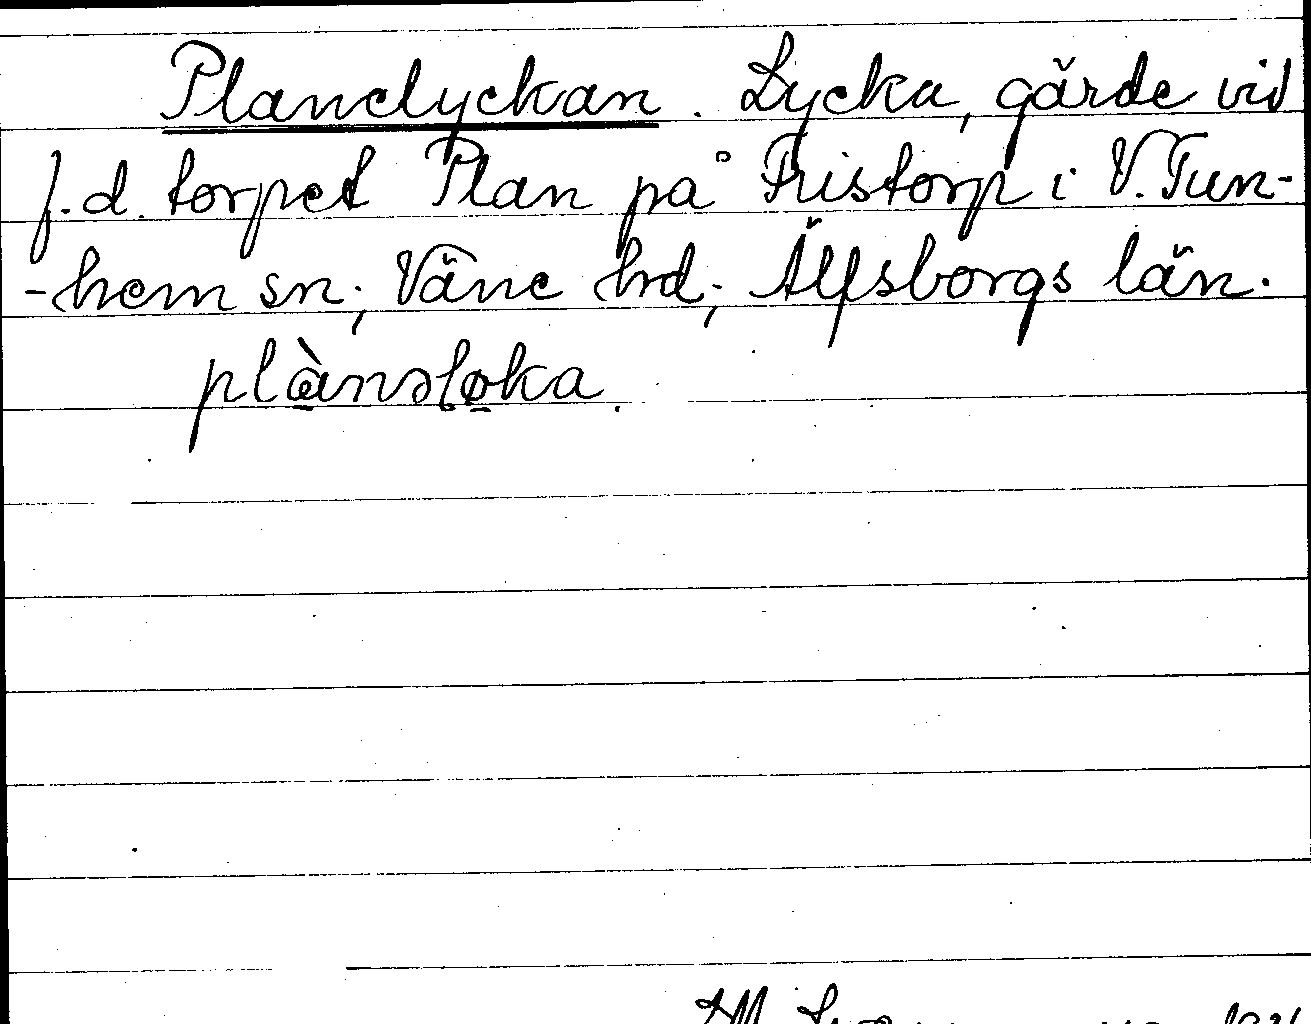 Planelyckan. Lycka, gärde vid
f.d. torpet Plan på Fristorp i V. Tun-
-hem sn; Väne hd; Älfsborgs län.
plànəlo̱ka.